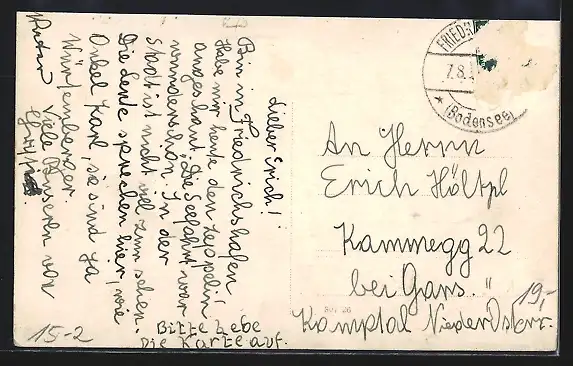 Lieber Erich!
Bin in Friedrichshafen
Habe mir heute den Zeppelin
angeschaut. Die Seefahrt war
wunderschön. In der
Stadt ist nicht viel zum sehen.
Die Leute sprechen hier, wie
Onkel Karl, sie sind ja
Württemberger.
Viele Busserln von
Bitte hebe
Die Karte auf.
FRIEDRI
7.8.
(Bodensee)
An Herrn
Erich Höltzl
Kammegg 22
bei Gars."
Kamptal Niederöster.
19,-
15-2